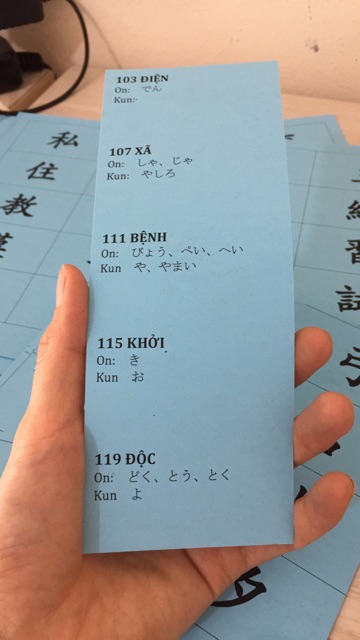 103 ĐIỆN
On: でん
Kun:-
107 XÃ
On: しゃ、じゃ
Kun: やしろ
111 BỆNH
On: びょう、ぺい、へい
Kun や、やまい
115 KHỞỊ
On: き
Kun お
119 ĐỘC
On: どく、とう、とく
Kun よ
私
住
教
習